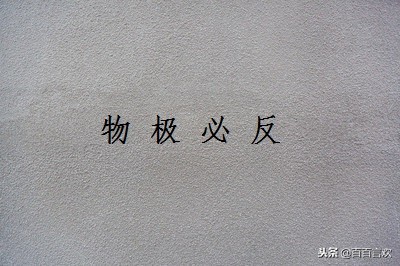 物极必反
头条 @百百言欢